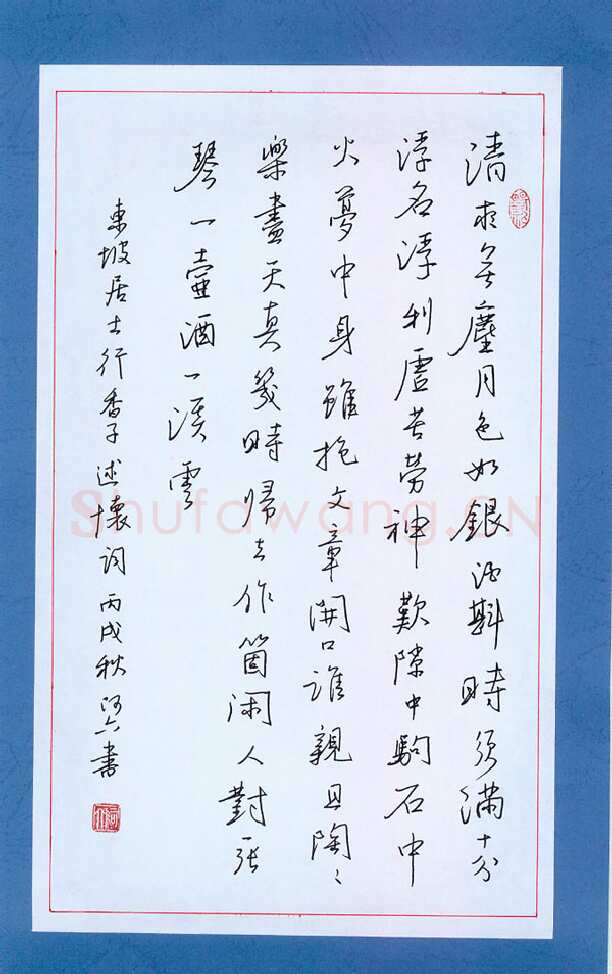 清夜無塵月色如銀酒斟時須滿十分
浮名浮利虛苦勞神歎隙中駒石中
火夢中身雖抱文章開口誰親且陶〻
樂盡天真幾時歸去作箇閑人對一張
琴一壺酒一溪雲
東坡居士行香子述懷詞丙戌秋書
Shufawang.CN